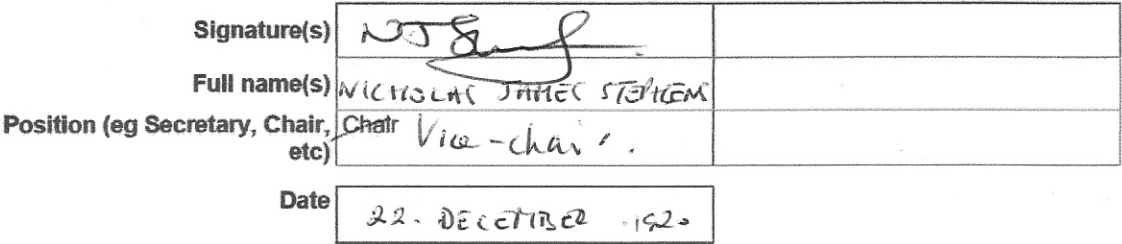 Signature(s) NJ
Full name(s) NICHOLAS JAMES STEPHENS
Position (eg Secretary, Chair, Chair Vice-chair.
etc)
Date 22. DECEMBER 1920